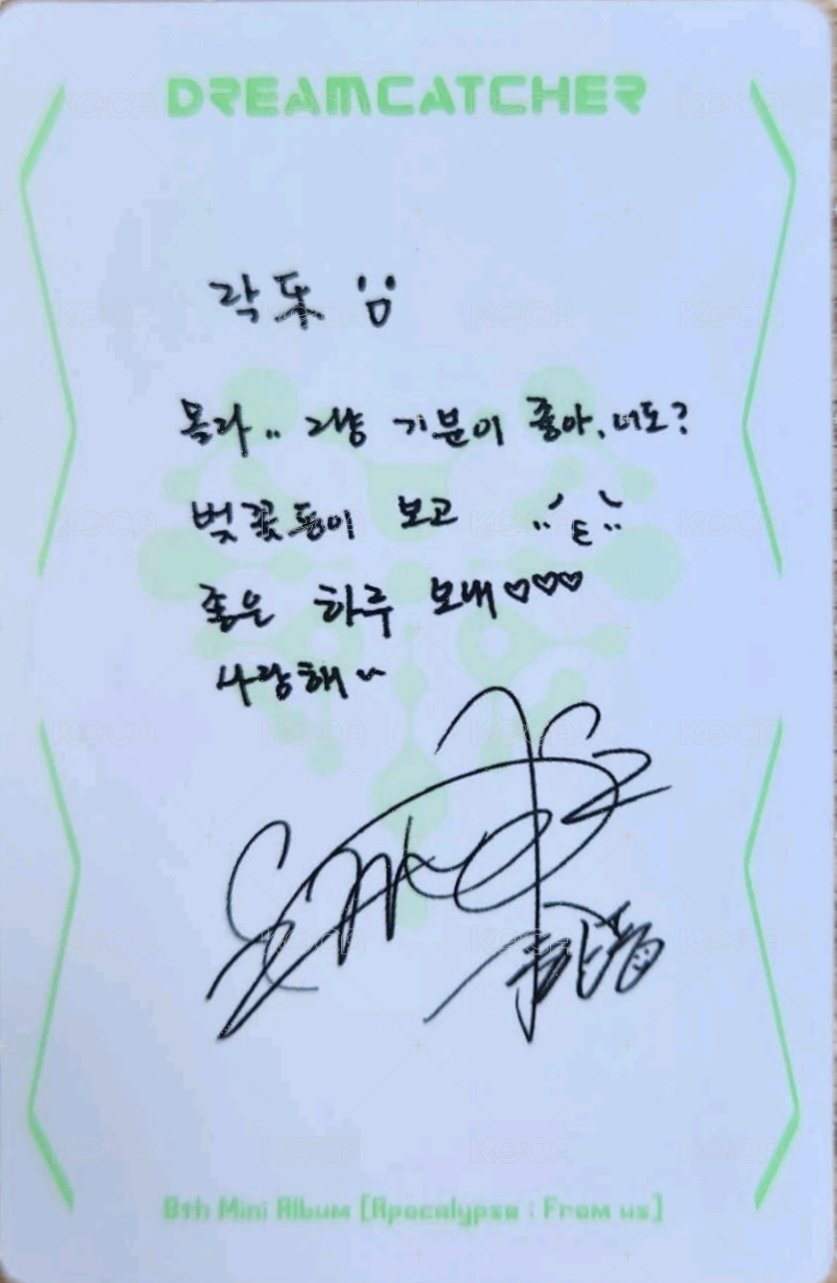 DREAMCATCHER
몰라.. 그냥 기분이 좋아, 너도?
벚꽃둥이 보고
좋은 하루 보내♡♡♡
사랑해~
8th Mini Album [Apocalypse : From us]
KOCA